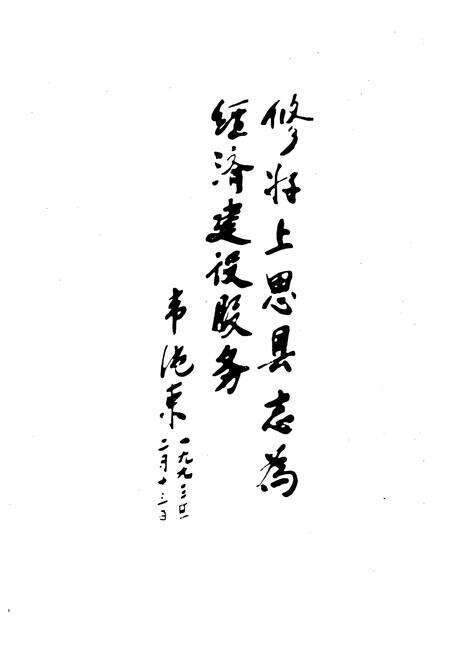 修好上思县志為
经济建设服务
韦纯束
一九九三年
二月十三日